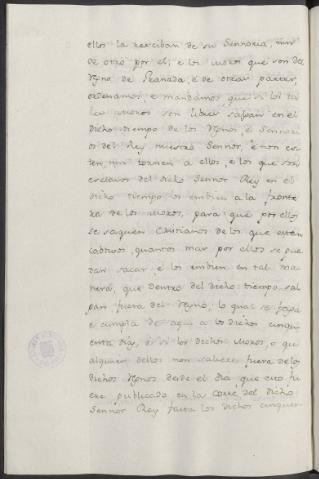 ellos la resciban de su Sennoria, nin
de otro por el; e los moros que son del
Regno de Granada, é de otras partes,
ordenamos, e mandamos, que si los ta
les moros son libres salgan en el
dicho tiempo de los Regnos, e Sennori
os del Rey nuestro Sennor, e non es
ten, nin tornen a ellos, e los que son
esclavos del dicho Sennor Rey en el
dicho tiempo los embien a la fronte
ra de los moros, para que por ellos
se saquen Christianos de los que estan
cabtivos, quantos mas por ellos se pue
dan sacar, e los embien en tal ma
nera, que dentro del dicho tiempo sal
gan fuera del Regno, lo qual se faga
e cumpla de aqui a los dichos cinqu
enta dias, e si los dichos moros, o que
alguien dellos non saliere fuera de los
dichos Regnos desde el dia que esto fu
ere publicado en la corte del dicho
Sennor Rey fasta los dichos cinquen